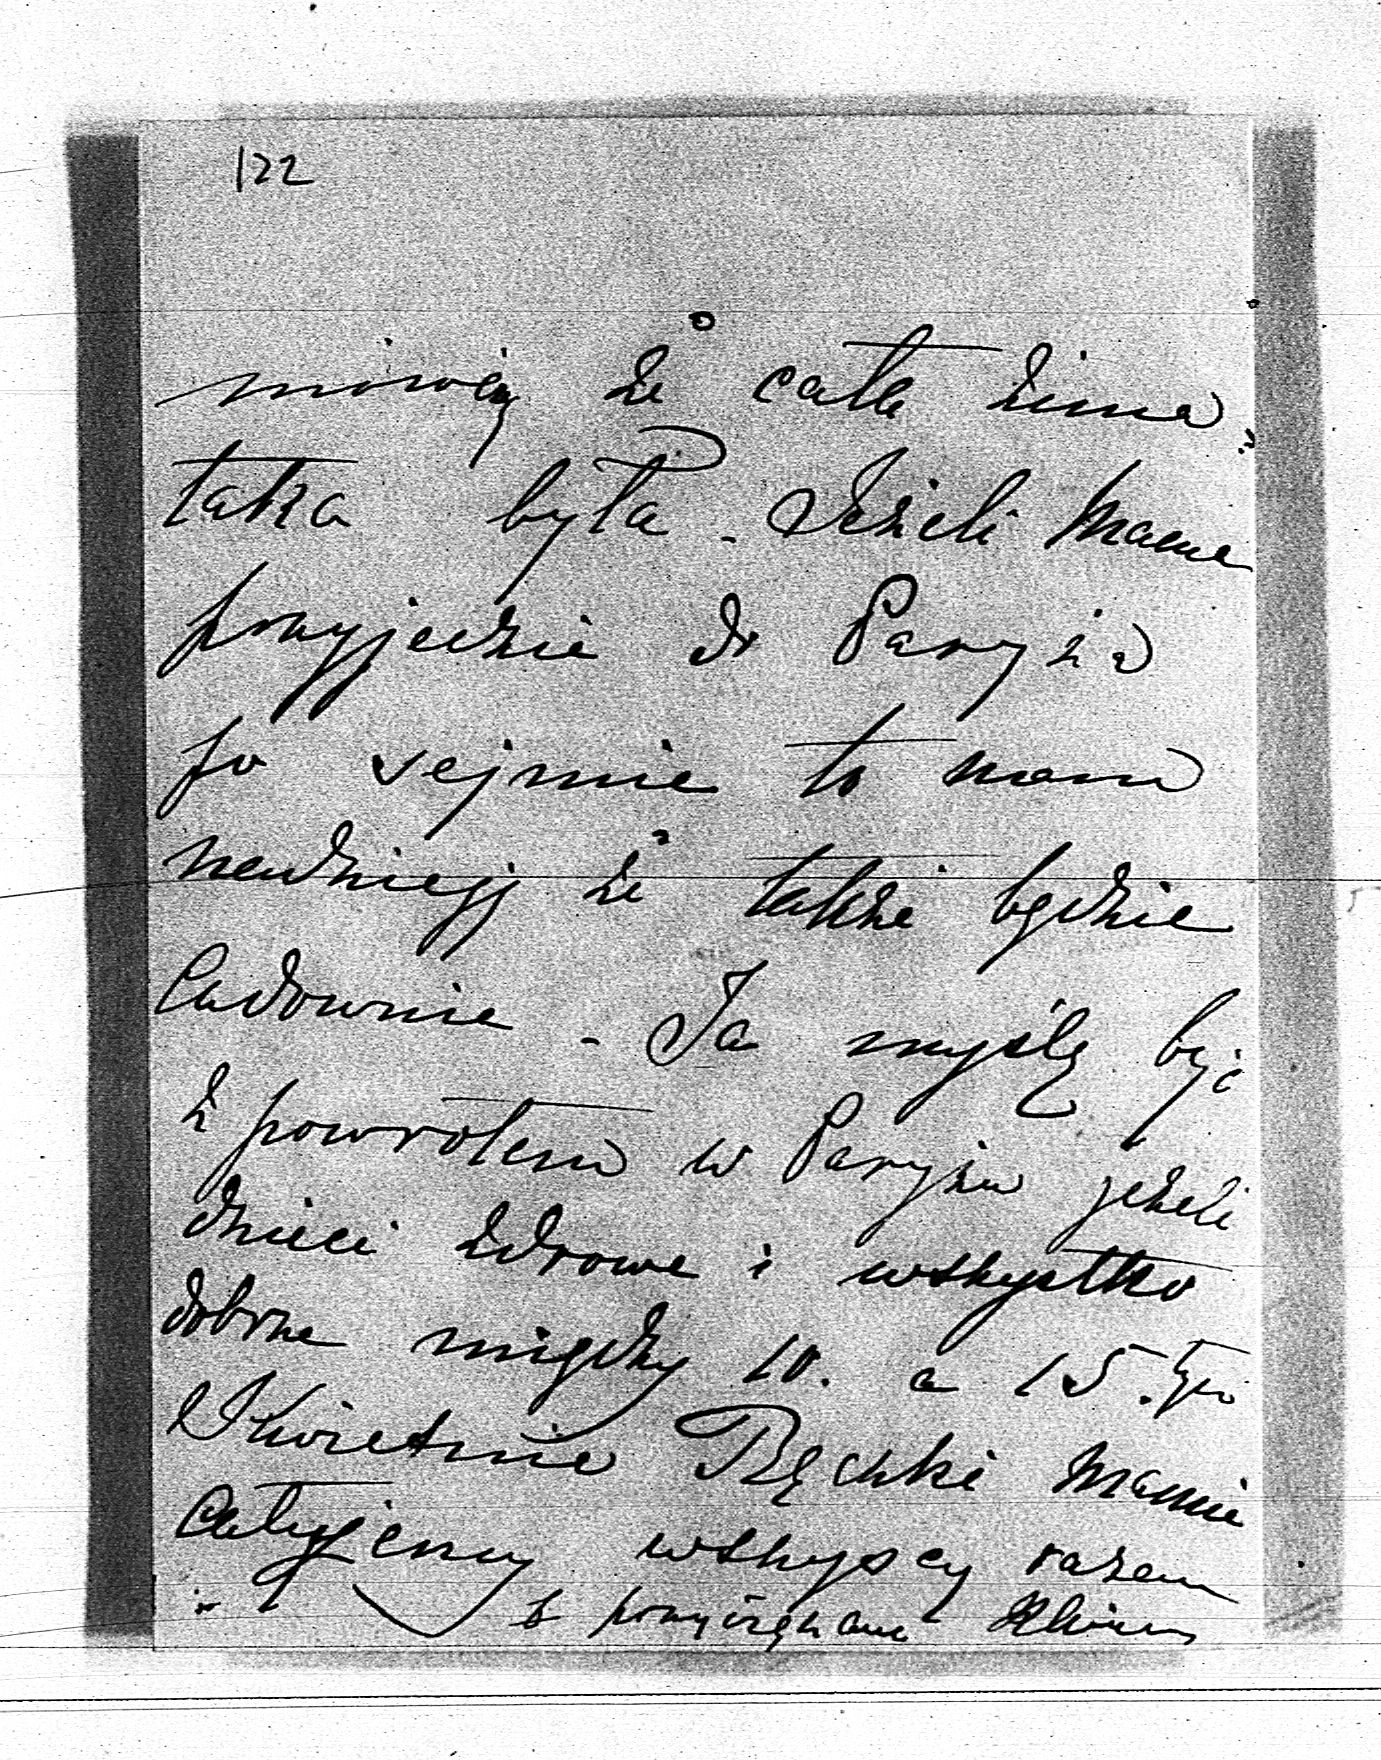 122
mówią że cała zima
taka była. Jeżeli Mama
przyjedzie do Paryża
po sejmie to mam
nadzieję że także będzie
cudownie. Ja myślę być
z powrotem w Paryżu jeżeli
dzieci zdrowe i wszystko
dobrze między 10. a 15. tym
Kwietnia Rączki Mamie
całujemy wszyscy razem
i z przywiązaniem